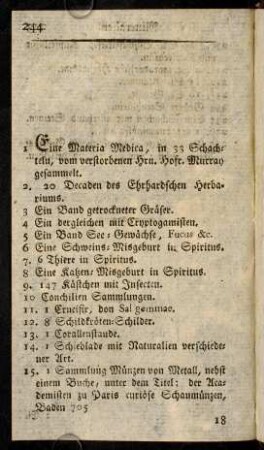 244
1 Eine Materia Medica, in 33 Schach-
teln, vom verstorbenen Hrn. Hofr. Murray
gesammelt.
2. 20 Decaden des Ehrhardschen Herba-
riums.
3 Ein Band getrockneter Gräser.
4 Ein dergleichen mit Cryptogamisten.
5 Ein Band See-Gewächse, Fucus &c.
6 Eine Schweins-Misgeburt in Spiritus.
7. 6 Thiere in Spiritus.
8 Eine Katzen-Misgeburt in Spiritus.
9. 147 Kästchen mit Insecten.
10 Conchilien Sammlungen.
11. 1 Crucifix, von Sal gemmae.
12. 8 Schildkröten-Schilder.
13. 1 Corallenstaude.
14. 1 Schieblade mit Naturalien verschiede-
ner Art.
15. 1 Sammlung Münzen von Metall, nebst
einem Buche, unter dem Titel: der Aca-
demisten zu Paris curiöse Schaumünzen,
Baden 705
18